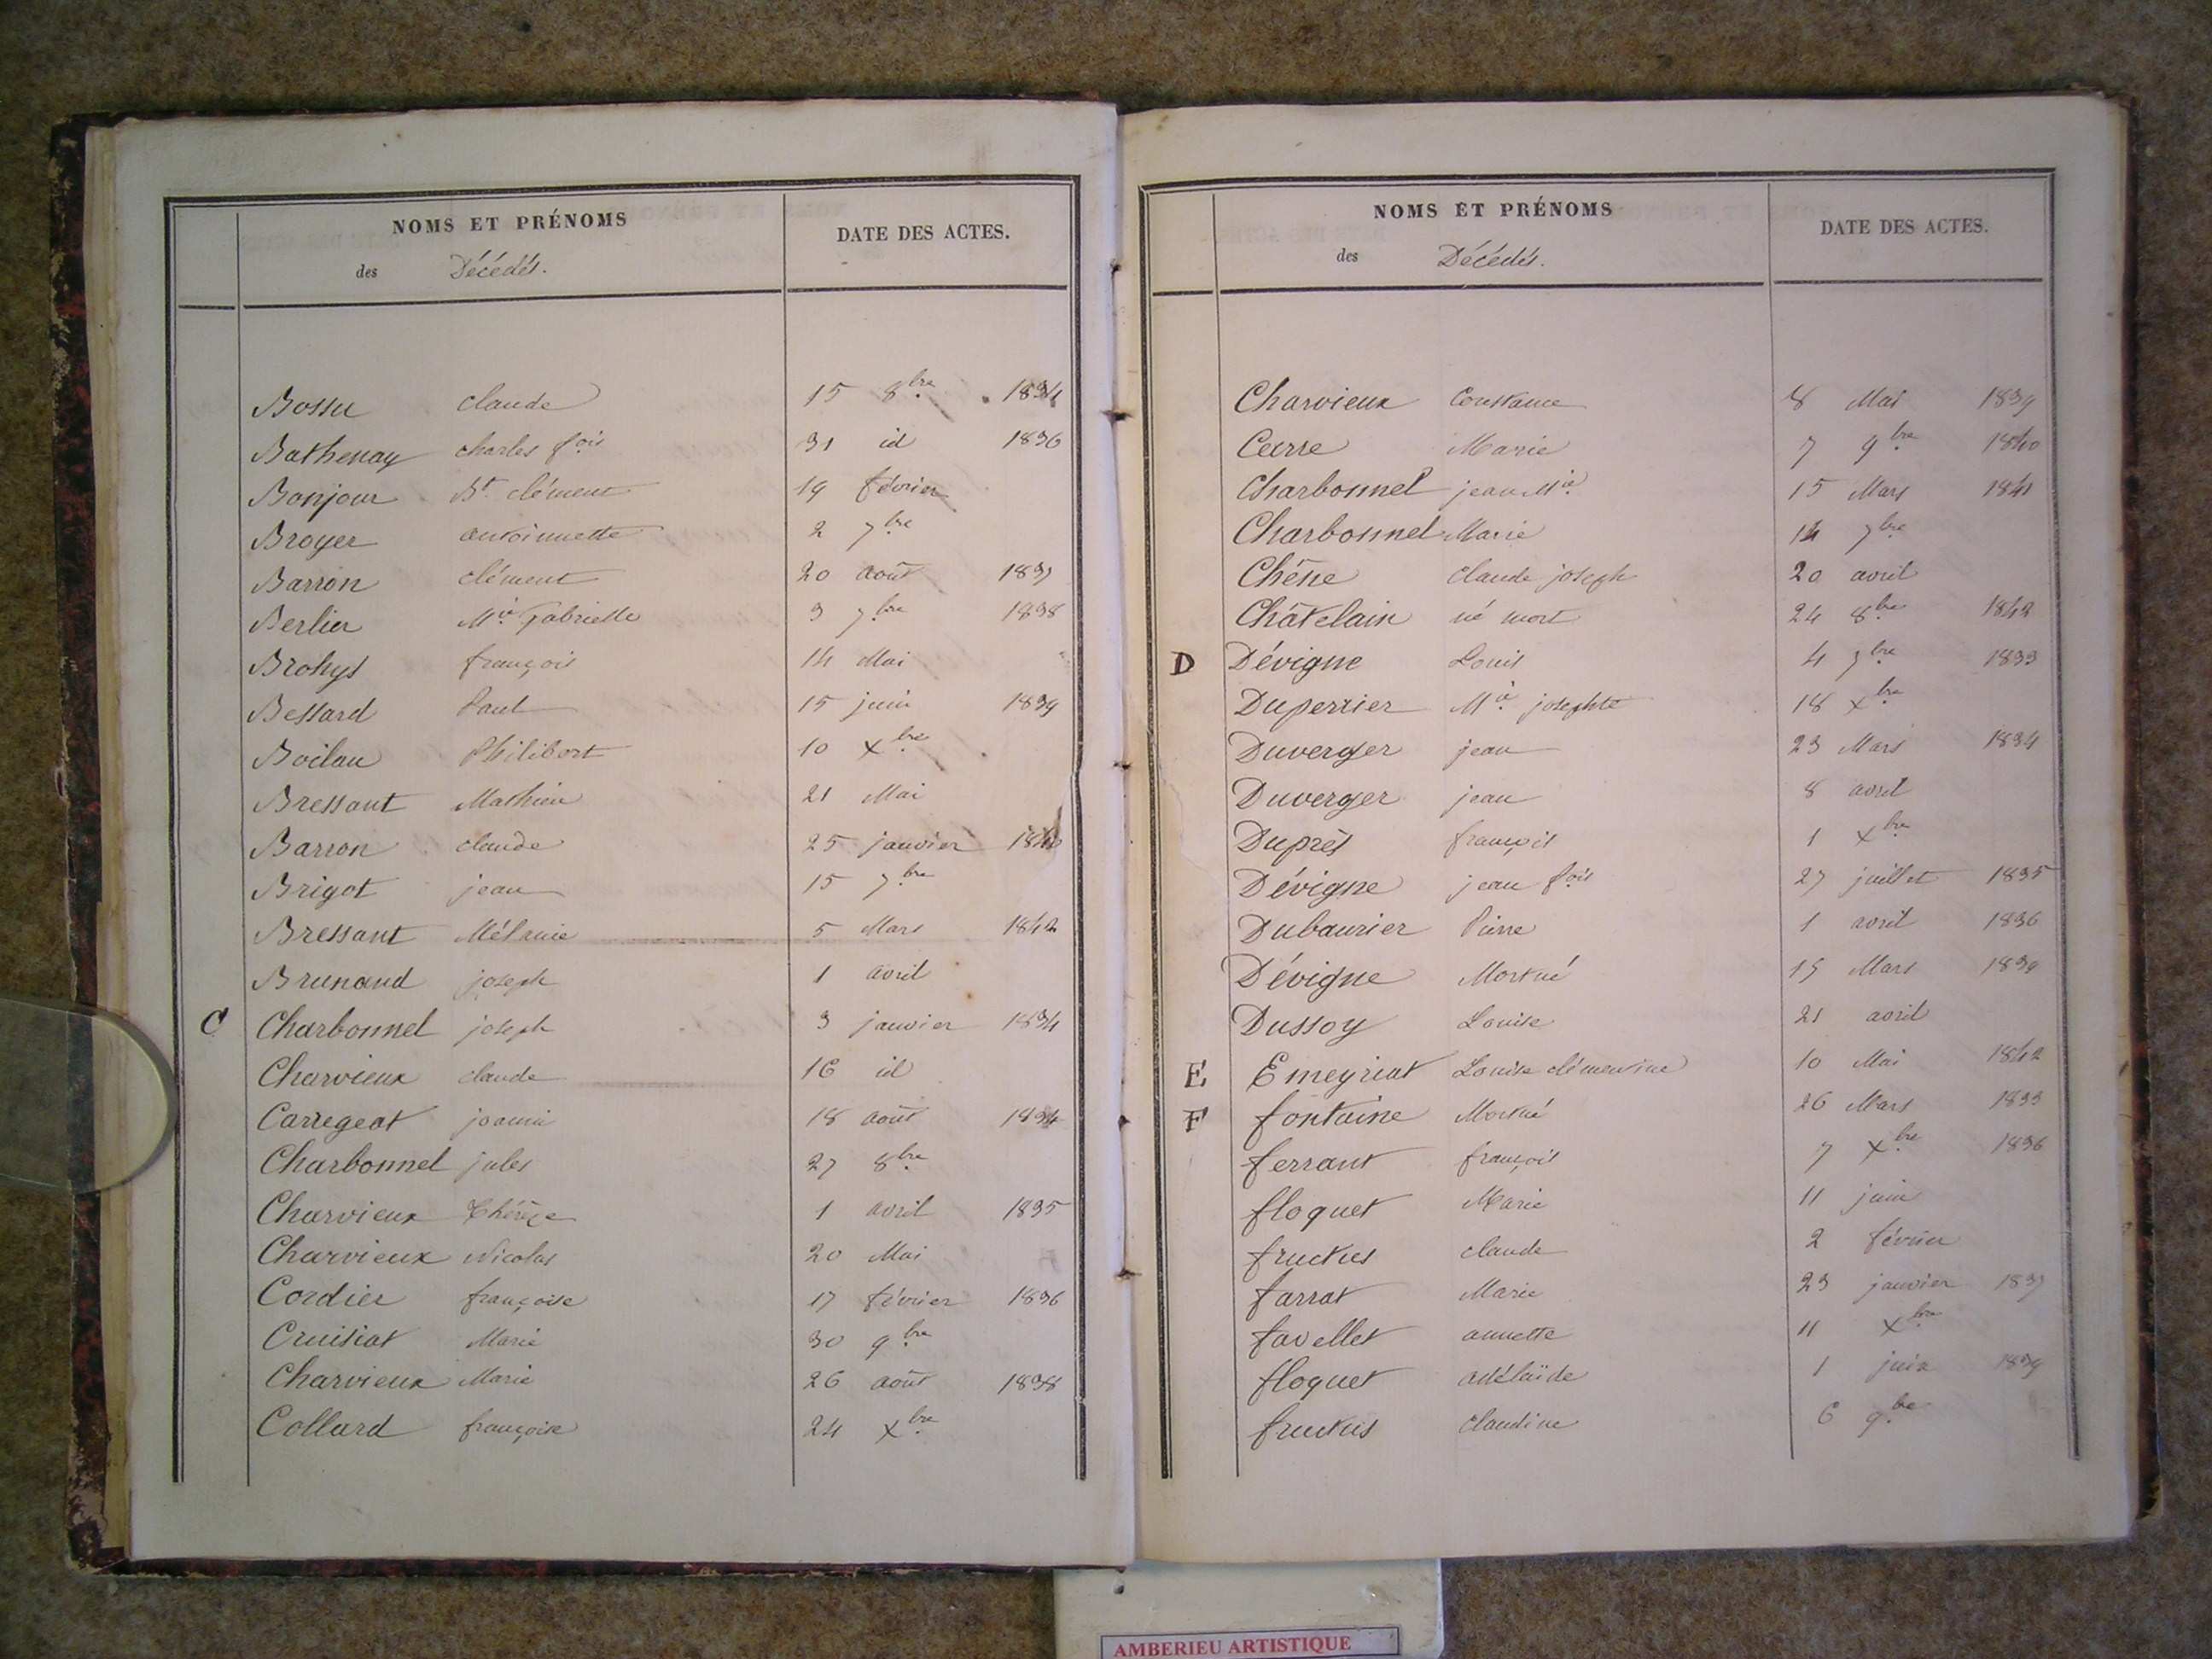 NOMS ET PRÉNOMS
des Décédés.
DATE DES ACTES.
Bossu claude 15 8bre 1834
Bathenay charles fois 31 id 1836
Bonjour Bt clément 19 février
Broyer antoinnette 2 7bre
Barron clément 20 août 1837
Berlier Mie Gabrielle 3 7bre 1838
Brohys françois 14 Mai
Bessard Paul 15 juin 1839
Boilau Philibert 10 xbre
Bressant Mathieu 21 Mai
Barron claude 25 janvier 1840
Brigot jean 15 7bre
Bressant Mélanie 5 Mars 1842
Brunand joseph 1 avril
C Charbonnel joseph 3 janvier 1834
Charvieux claude 16 id
Carregeat joanni 18 août 1834
Charbonnel jules 27 8bre
Charvieux Thérèze 1 avril 1835
Charvieux Nicolas 20 Mai
Cordier françoise 17 février 1836
Cruisiat Marie 30 9bre
Charvieux Marie 26 août 1838
Collard françoise 24 xbre
NOMS ET PRÉNOMS
des Décédés.
DATE DES ACTES.
Charvieux Constance 8 Mai 1839
Marie 7 9bre 1840
Charbonnel jean Mie 15 Mars 1841
Charbonnel Marie 14 7bre
Chêne claude joseph 20 avril
Châtelain né mort 24 8bre 1842
D Dévigne Louis 4 7bre 1833
Duperrier Mie josephte 18 xbre
Duverger jean 23 Mars 1834
Duverger jean 8 avril
Duprès françois 1 xbre
Dévigne jean fois 27 juillet 1835
Dubaurier Pierre 1 avril 1836
Dévigne Mortné 15 Mars 1839
Dussoy Louise 21 avril
E Emeyriat Louise clémentine 10 Mai 1842
F fontaine Mortné 26 Mars 1833
ferrant françois 7 xbre 1836
floquet Marie 11 juin
fructus claude 2 février
farrat Marie 23 janvier 1837
favellet annette 11 xbre
floquet adélaïde 1 juin 1839
fructus claudine 6 9bre
AMBERIEU ARTISTIQUE